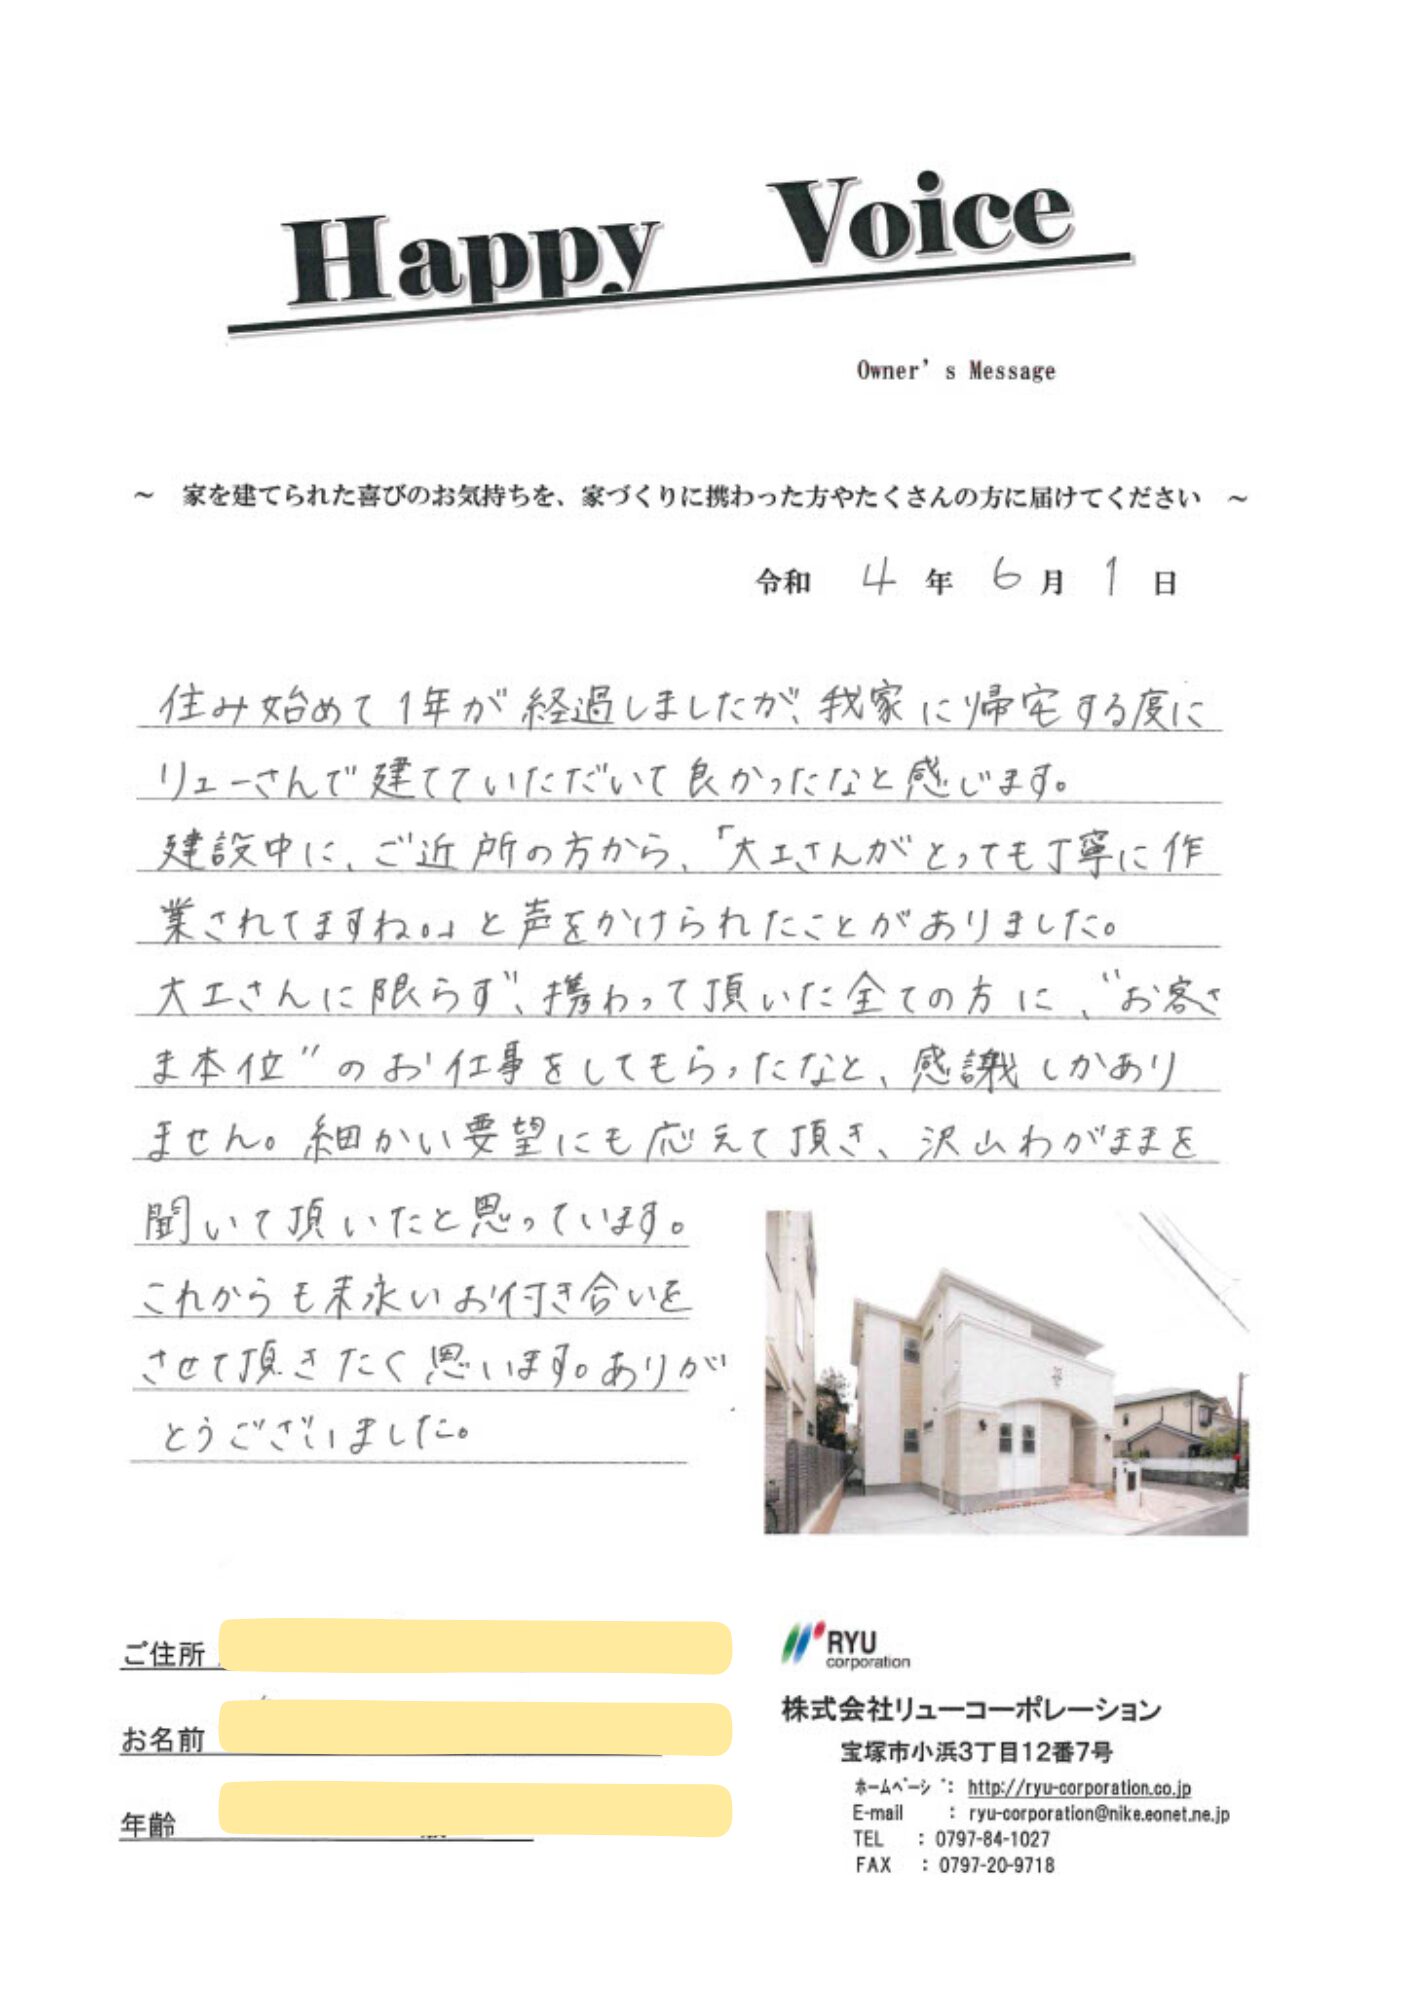 Happy Voice
Owner's Message
～ 家を建てられた喜びのお気持ちを、家づくりに携わった方やたくさんの方に届けてください ～
令和 4 年 6 月 1 日
住み始めて1年が経過しましたが、我家に帰宅する度に
リューさんで建てていただいて良かったなと感じます。
建設中に、ご近所の方から、「大工さんがとっても丁寧に作
業されてますね。」と声をかけられたことがありました。
大工さんに限らず、携わって頂いた全ての方に、"お客さ
ま本位"のお仕事をしてもらったなと、感謝しかあり
ません。細かい要望にも応えて頂き、沢山わがままを
聞いて頂いたと思っています。
これからも末永いお付き合いを
させて頂きたく思います。ありが
とうございました。
ご住所
お名前
年齢
RYU
corporation
株式会社リューコーポレーション
宝塚市小浜3丁目12番7号
ﾎｰﾑﾍﾟｰｼﾞ： http://ryu-corporation.co.jp
E-mail ： ryu-corporation@nike.eonet.ne.jp
TEL ： 0797-84-1027
FAX ： 0797-20-9718